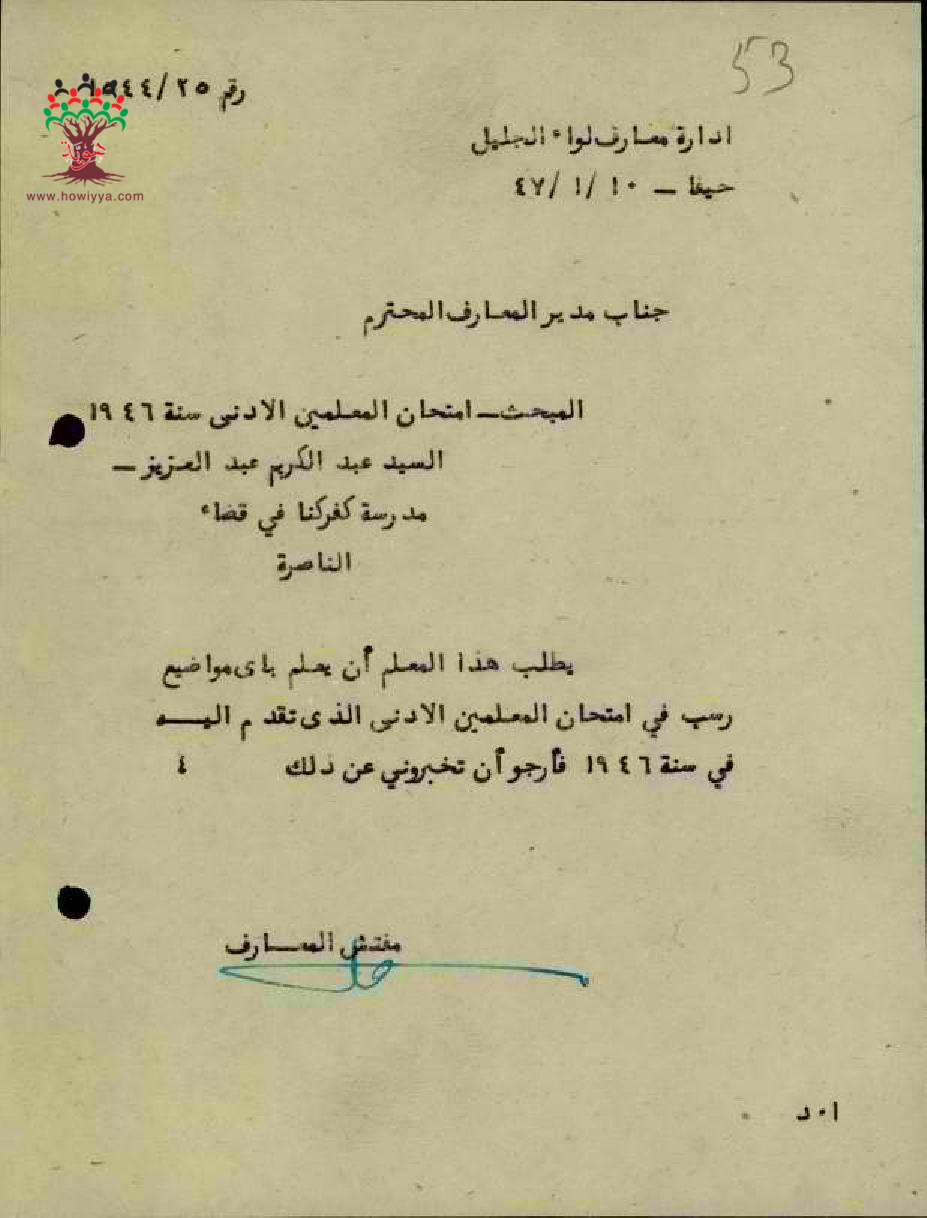 53
رقم ٢٥/١٩٤٤
هوية
www.howiyya.com
ادارة معارف لواء الجليل
حيفا ــ ١٠/١/٤٧
جناب مدير المعارف المحترم
المبحث ــ امتحان المعلمين الادنى سنة ١٩٤٦
السيد عبد الكريم عبد العزيز ــ
مدرسة كفركنا في قضاء
الناصرة
يطلب هذا المعلم أن يعلم باى مواضيع
رسب في امتحان المعلمين الادنى الذى تقدم اليـــه
في سنة ١٩٤٦ فأرجو أن تخبروني عن ذلك ٤
مفتش المعـــارف
ا٠د